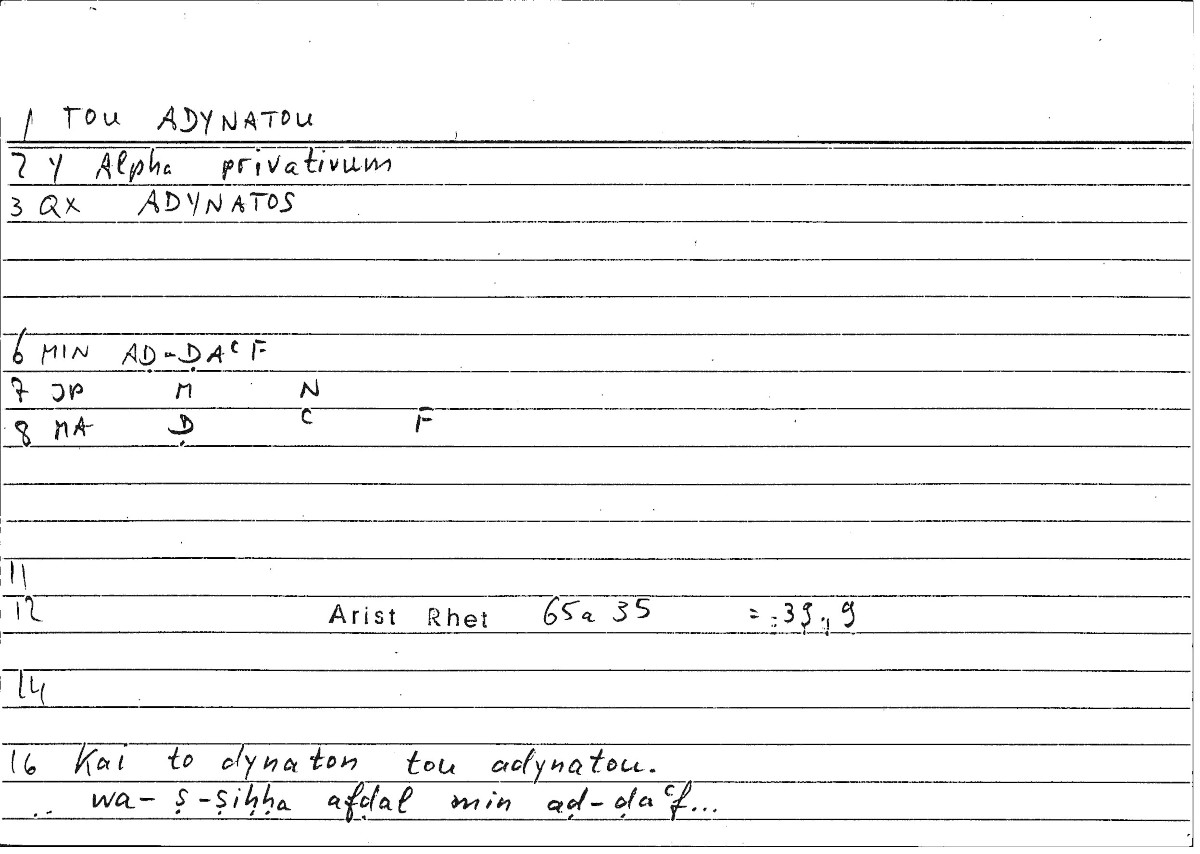 1 TOU ADYNATOU
2 Y Alpha privativum
3 QX ADYNATOS
6 MIN AḌ-ḌAᶜF
7 JP M N
8 MA Ḍ ᶜ F
11
12 Arist Rhet 65a 35 = :39,9
14
16 Kai to dynaton tou adynatou.
.. wa-ṣ-ṣiḥḥa afḍal min aḍ-ḍaᶜf...